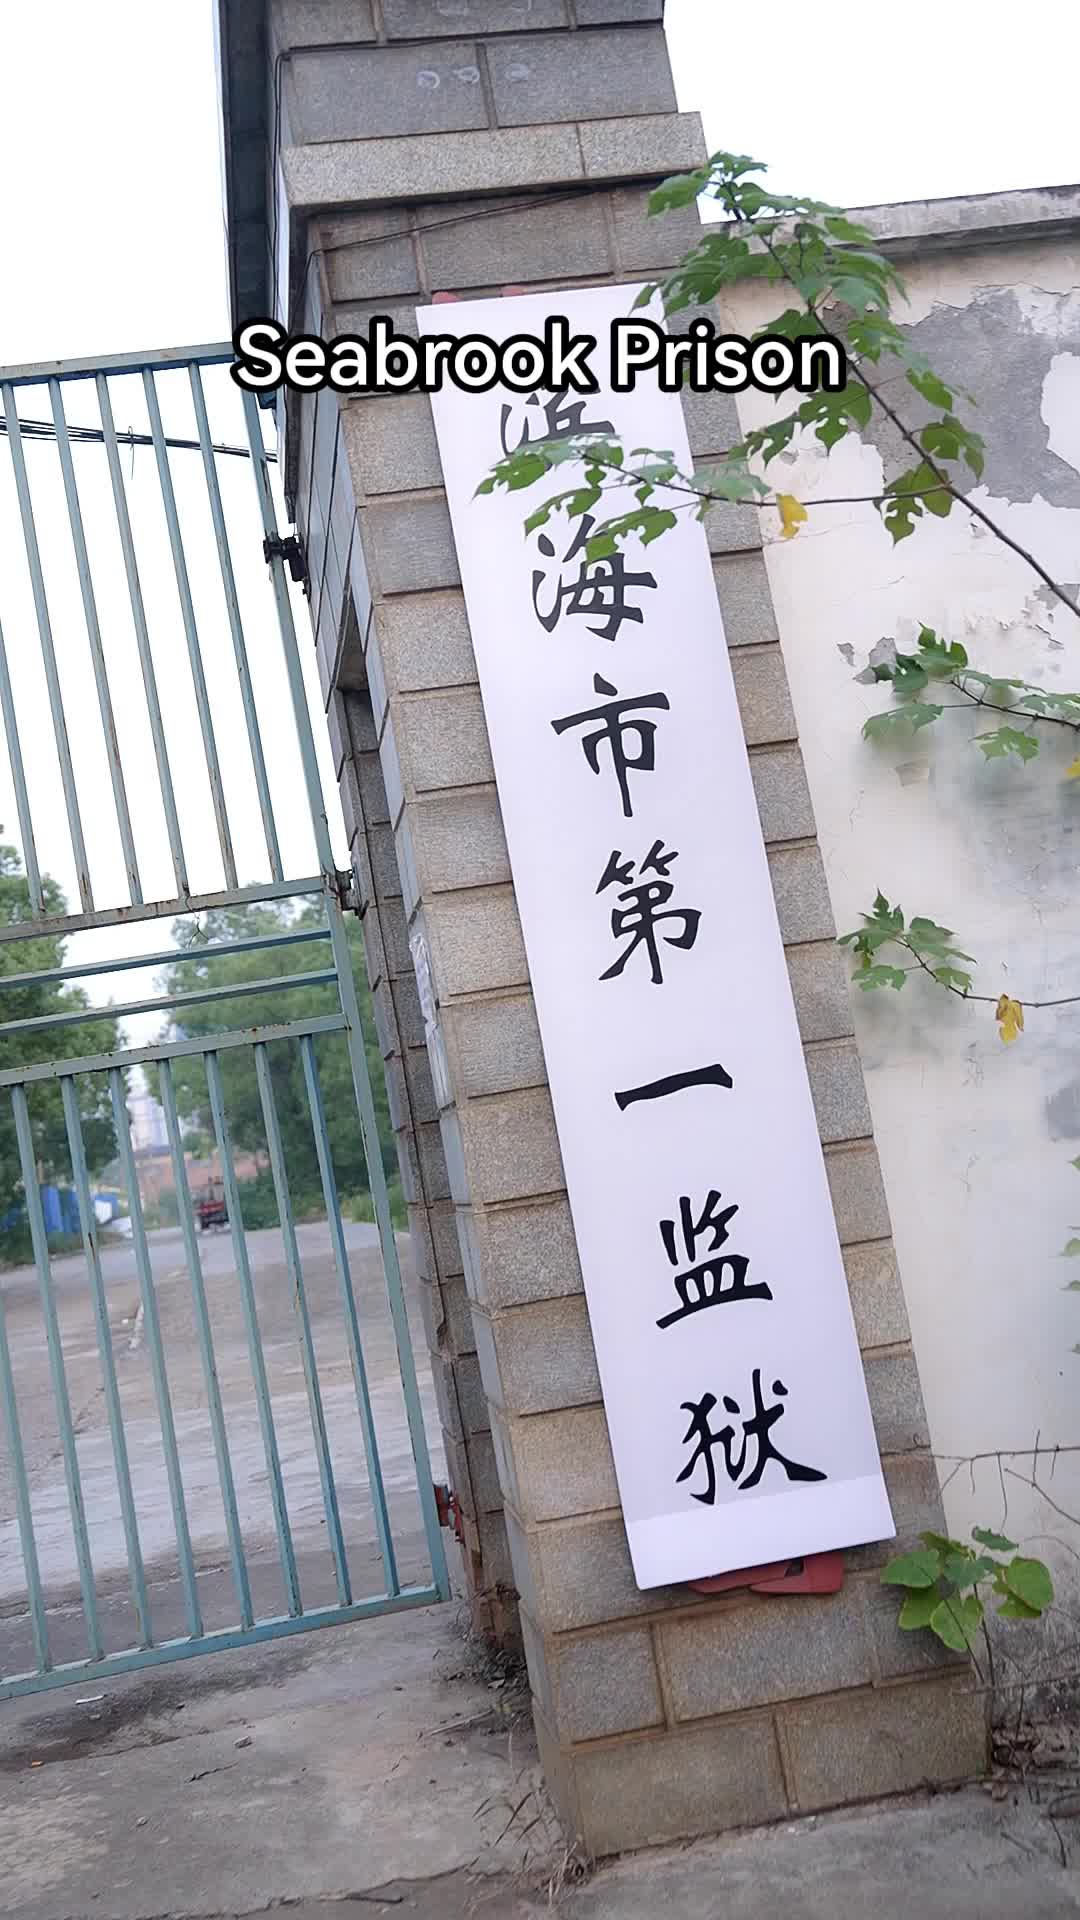 Seabrook Prison
滨海市第一监狱